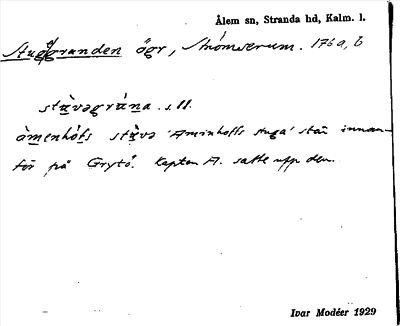 Ålem sn, Stranda hd, Kalm. l.
Stuggranden ögr, Strömserum. 176 a, b
stùvəgrànа. s.ll.
àmenhòfs stùvə 'Aminhoffs stuga' står innan-
för på Grytö. Kapten A. satte upp den.
Ivar Modéer 1929